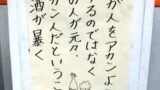 が人をアカンよ
るのではなく
の人が元々
カン人だというこ
酒が暴く